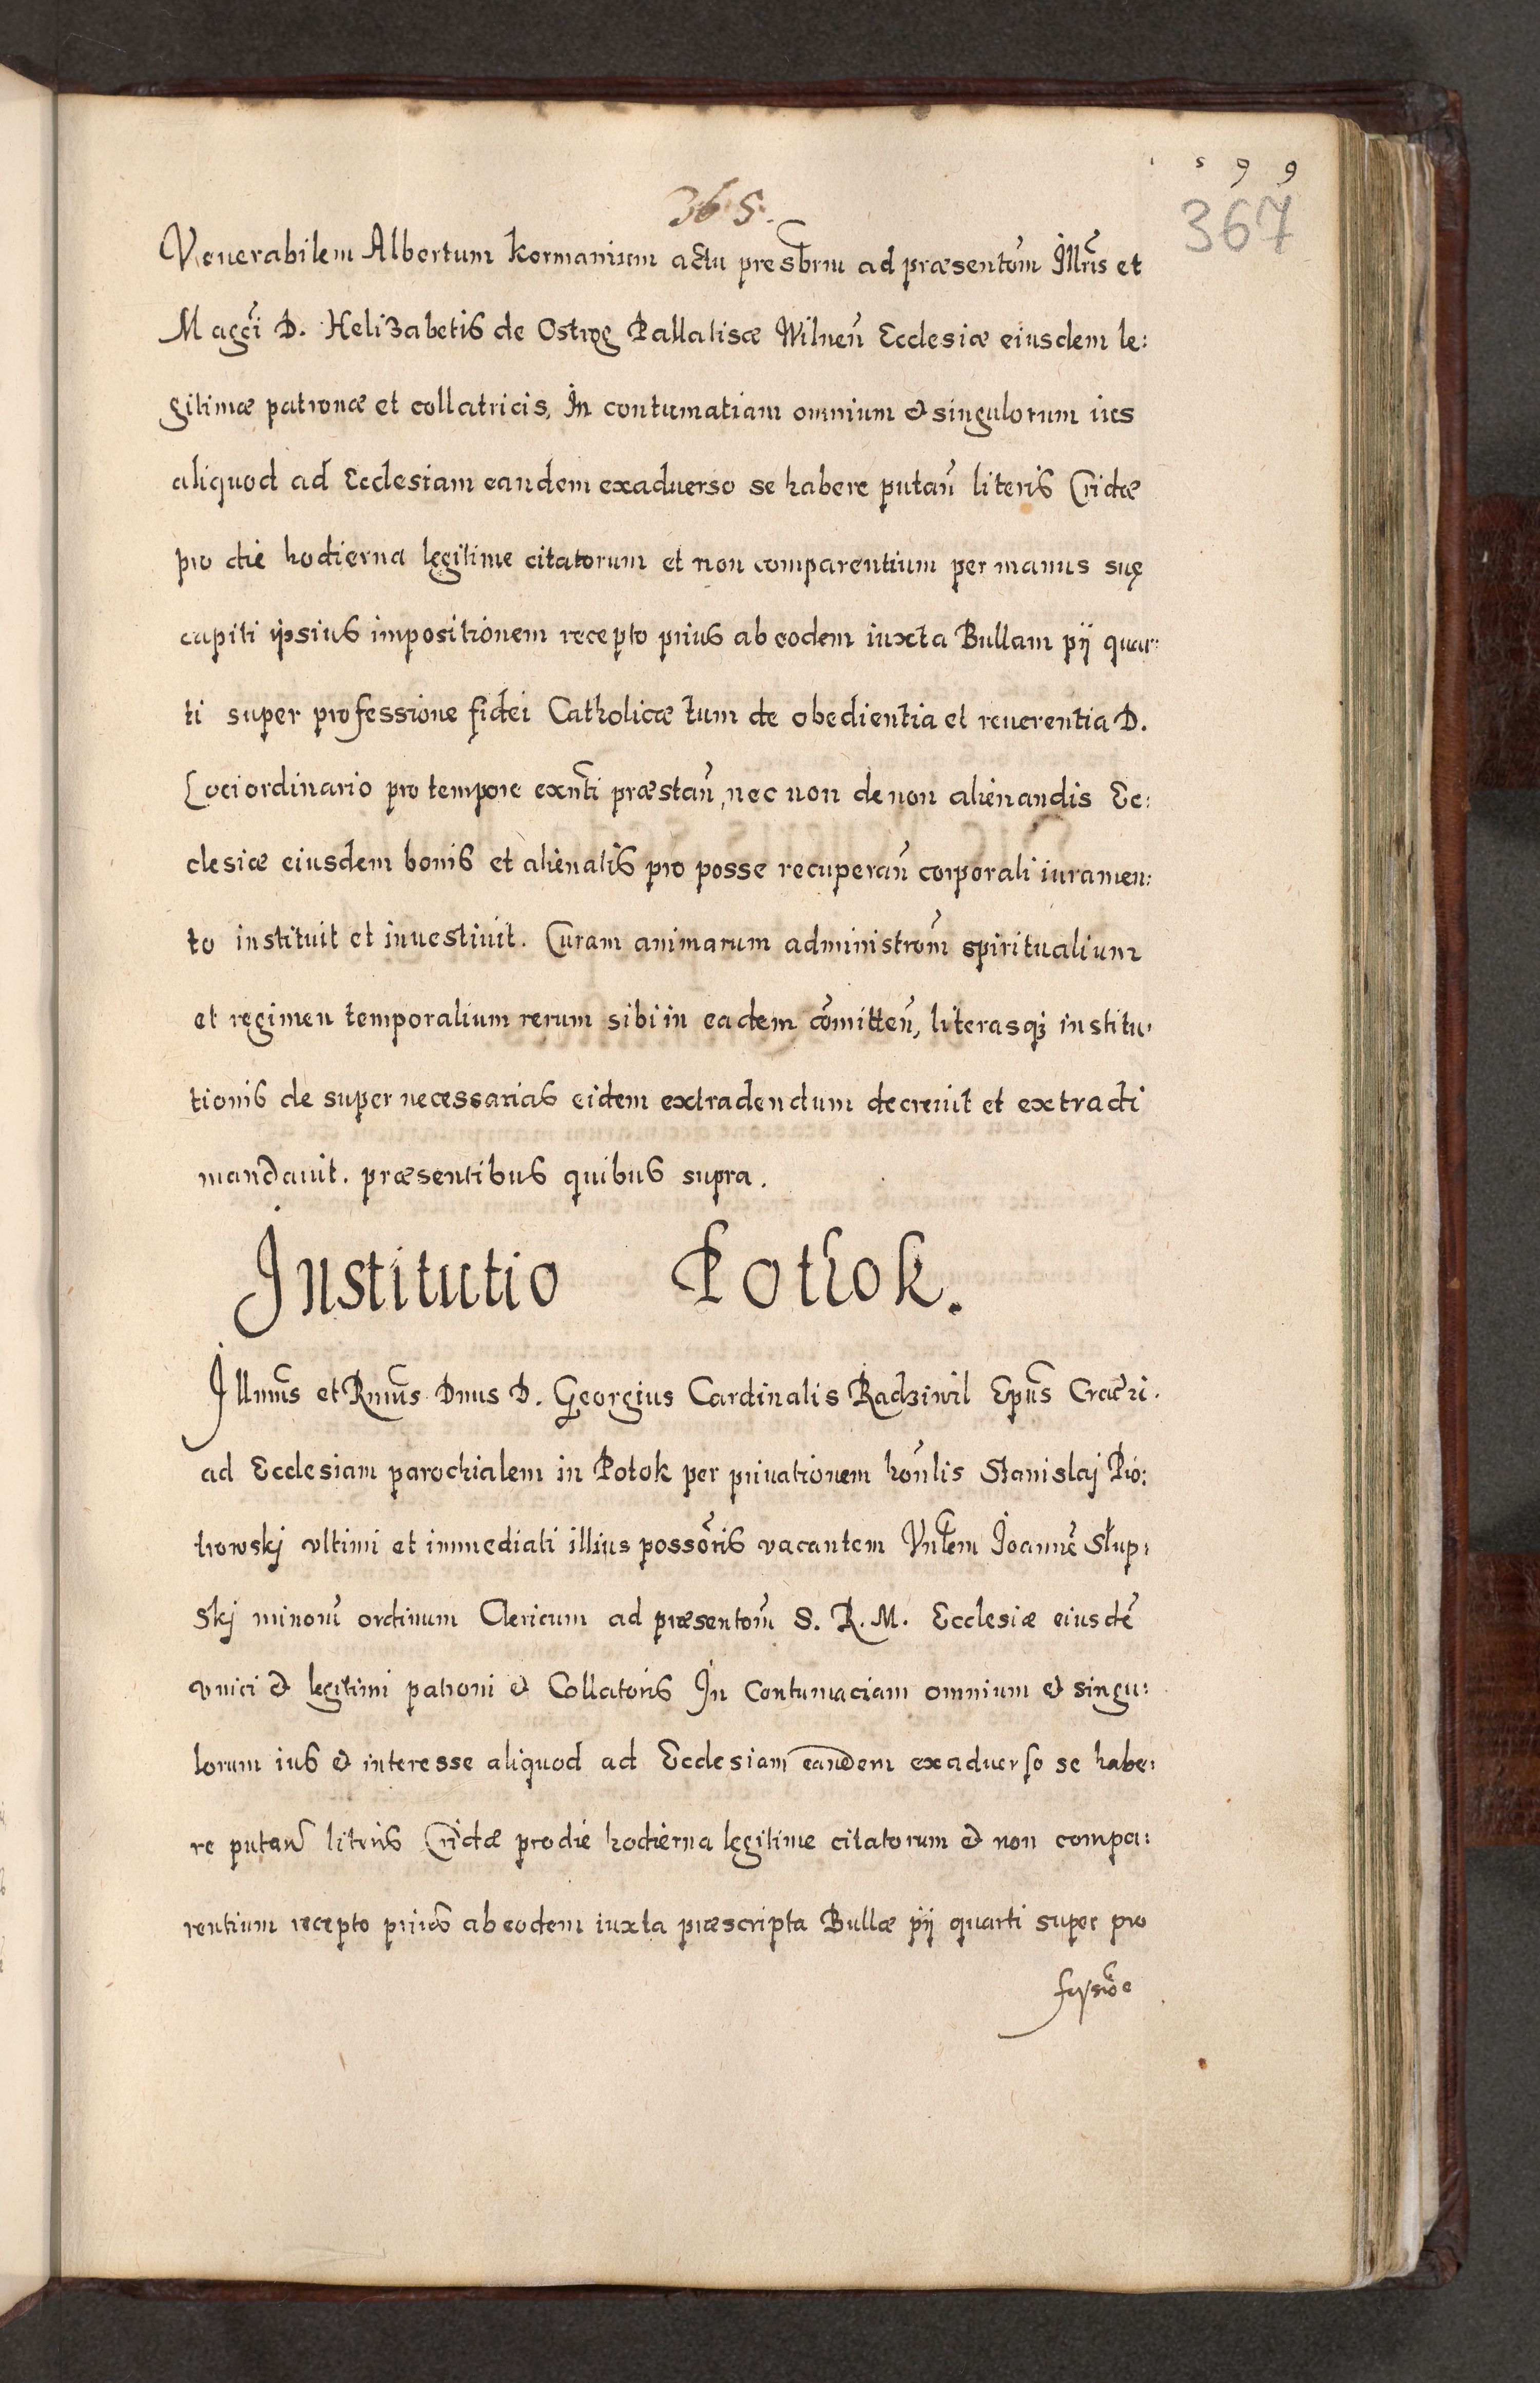 1 5 9 9
367
365.
Venerabilem Albertum Kormanium actu presbrm ad præsentom̃ Illris et
Maggci D. Helizabetis de Ostrog Pallatisæ Wilnen̄ Ecclesiæ eiusdem le:
gitimæ patronæ et collatricis, In contumatiam omnium & singulorum ius
aliquod ad Ecclesiam eandem exaduerso se habere putan̄ literis Cridæ
pro die hodierna legitime citatorum et non comparentium per manus suę
capiti ipsius impositionem recepto prius ab eodem iuxta Bullam pij quar:
ti super professione fidei Catholicæ tum de obedientia et reuerentia D.
Loci ordinario pro tempore exnti præstan̄, nec non de non alienandis Ec:
clesiæ eiusdem bonis et alienatis pro posse recuperan̄ corporali iuramen:
to instituit et inuestiuit. Curam animarum administrom̄ spiritualium
et regimen temporalium rerum sibi in eadem cōmitten̄, literasqȝ institu:
tionis de super necessarias eidem extradendum decreuit et extradi
mandauit. præsentibus quibus supra.
Institutio Pothok.
Illmus et Rmus Dnus D. Georgius Cardinalis Radziwil Epus Cracri.
ad Ecclesiam parochialem in Potok per priuationem honlis Stanislaj Pio:
trowskj vltimi et immediati illius possoris vacantem Vnlem Joannē Słup:
skj minorū ordinum Clericum ad præsentom̄ S. R. M. Ecclesiæ eiusdē
vnici & legitimi patroni & Collatoris In Contumaciam omnium & singu:
lorum ius & interesse aliquod ad Ecclesiam eandem exaduerso se habe:
re putan̄ literis Cridæ pro die hodierna legitime citatorum & non compa:
rentium recepto prius ab eodem iuxta præscripta Bullæ pij quarti super pro